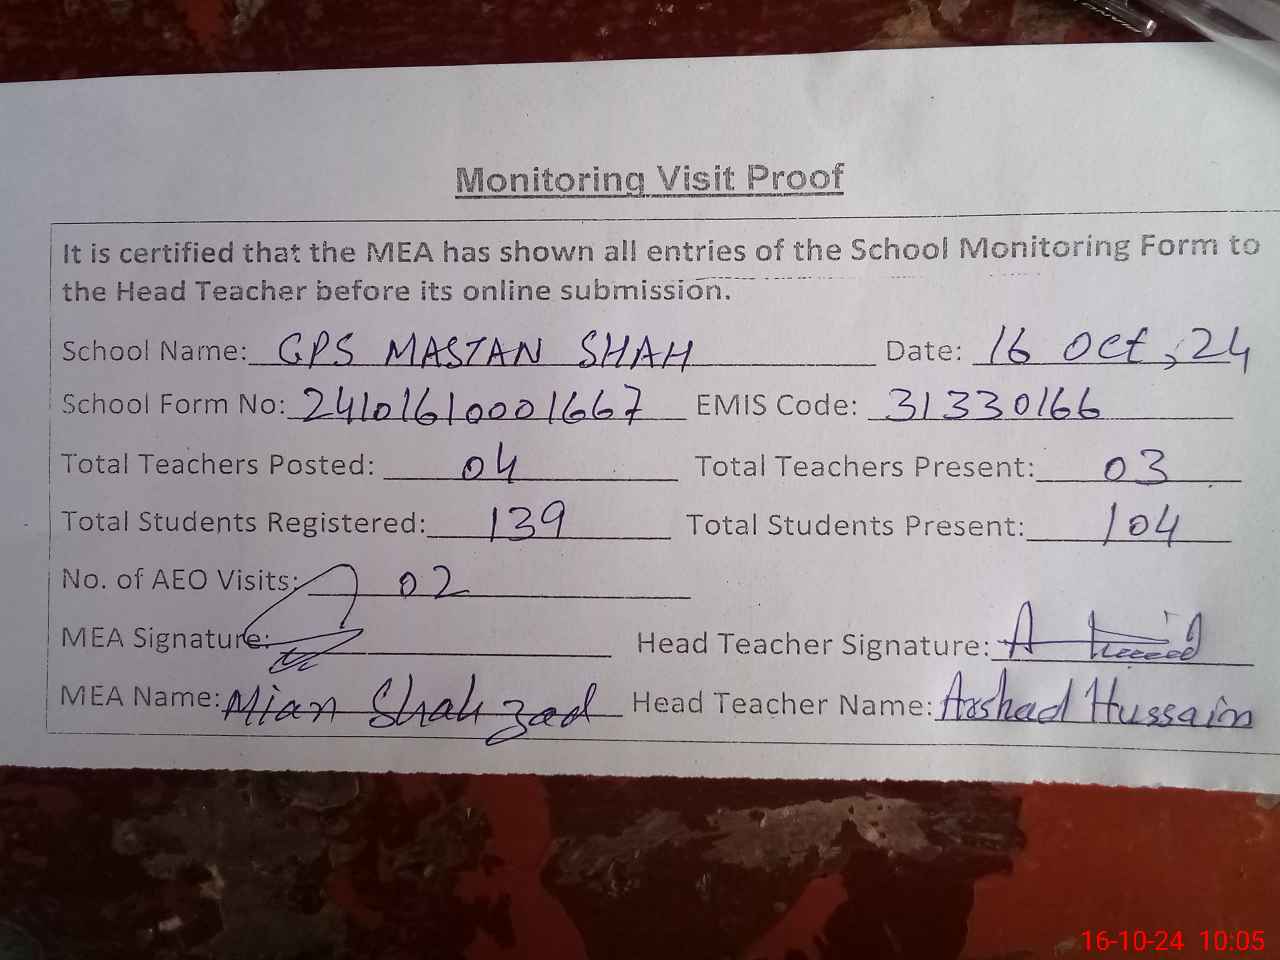 Monitoring Visit Proof
It is certified that the MEA has shown all entries of the School Monitoring Form to
the Head Teacher before its online submission.
School Name: GPS MASTAN SHAH Date: 16 Oct, 24
School Form No: 24101610001667 EMIS Code: 31330166
Total Teachers Posted: 04 Total Teachers Present: 03
Total Students Registered: 139 Total Students Present: 104
No. of AEO Visits: 02
MEA Signature: Head Teacher Signature:
MEA Name: Mian Shahzad Head Teacher Name: Arshad Hussain
16-10-24 10:05